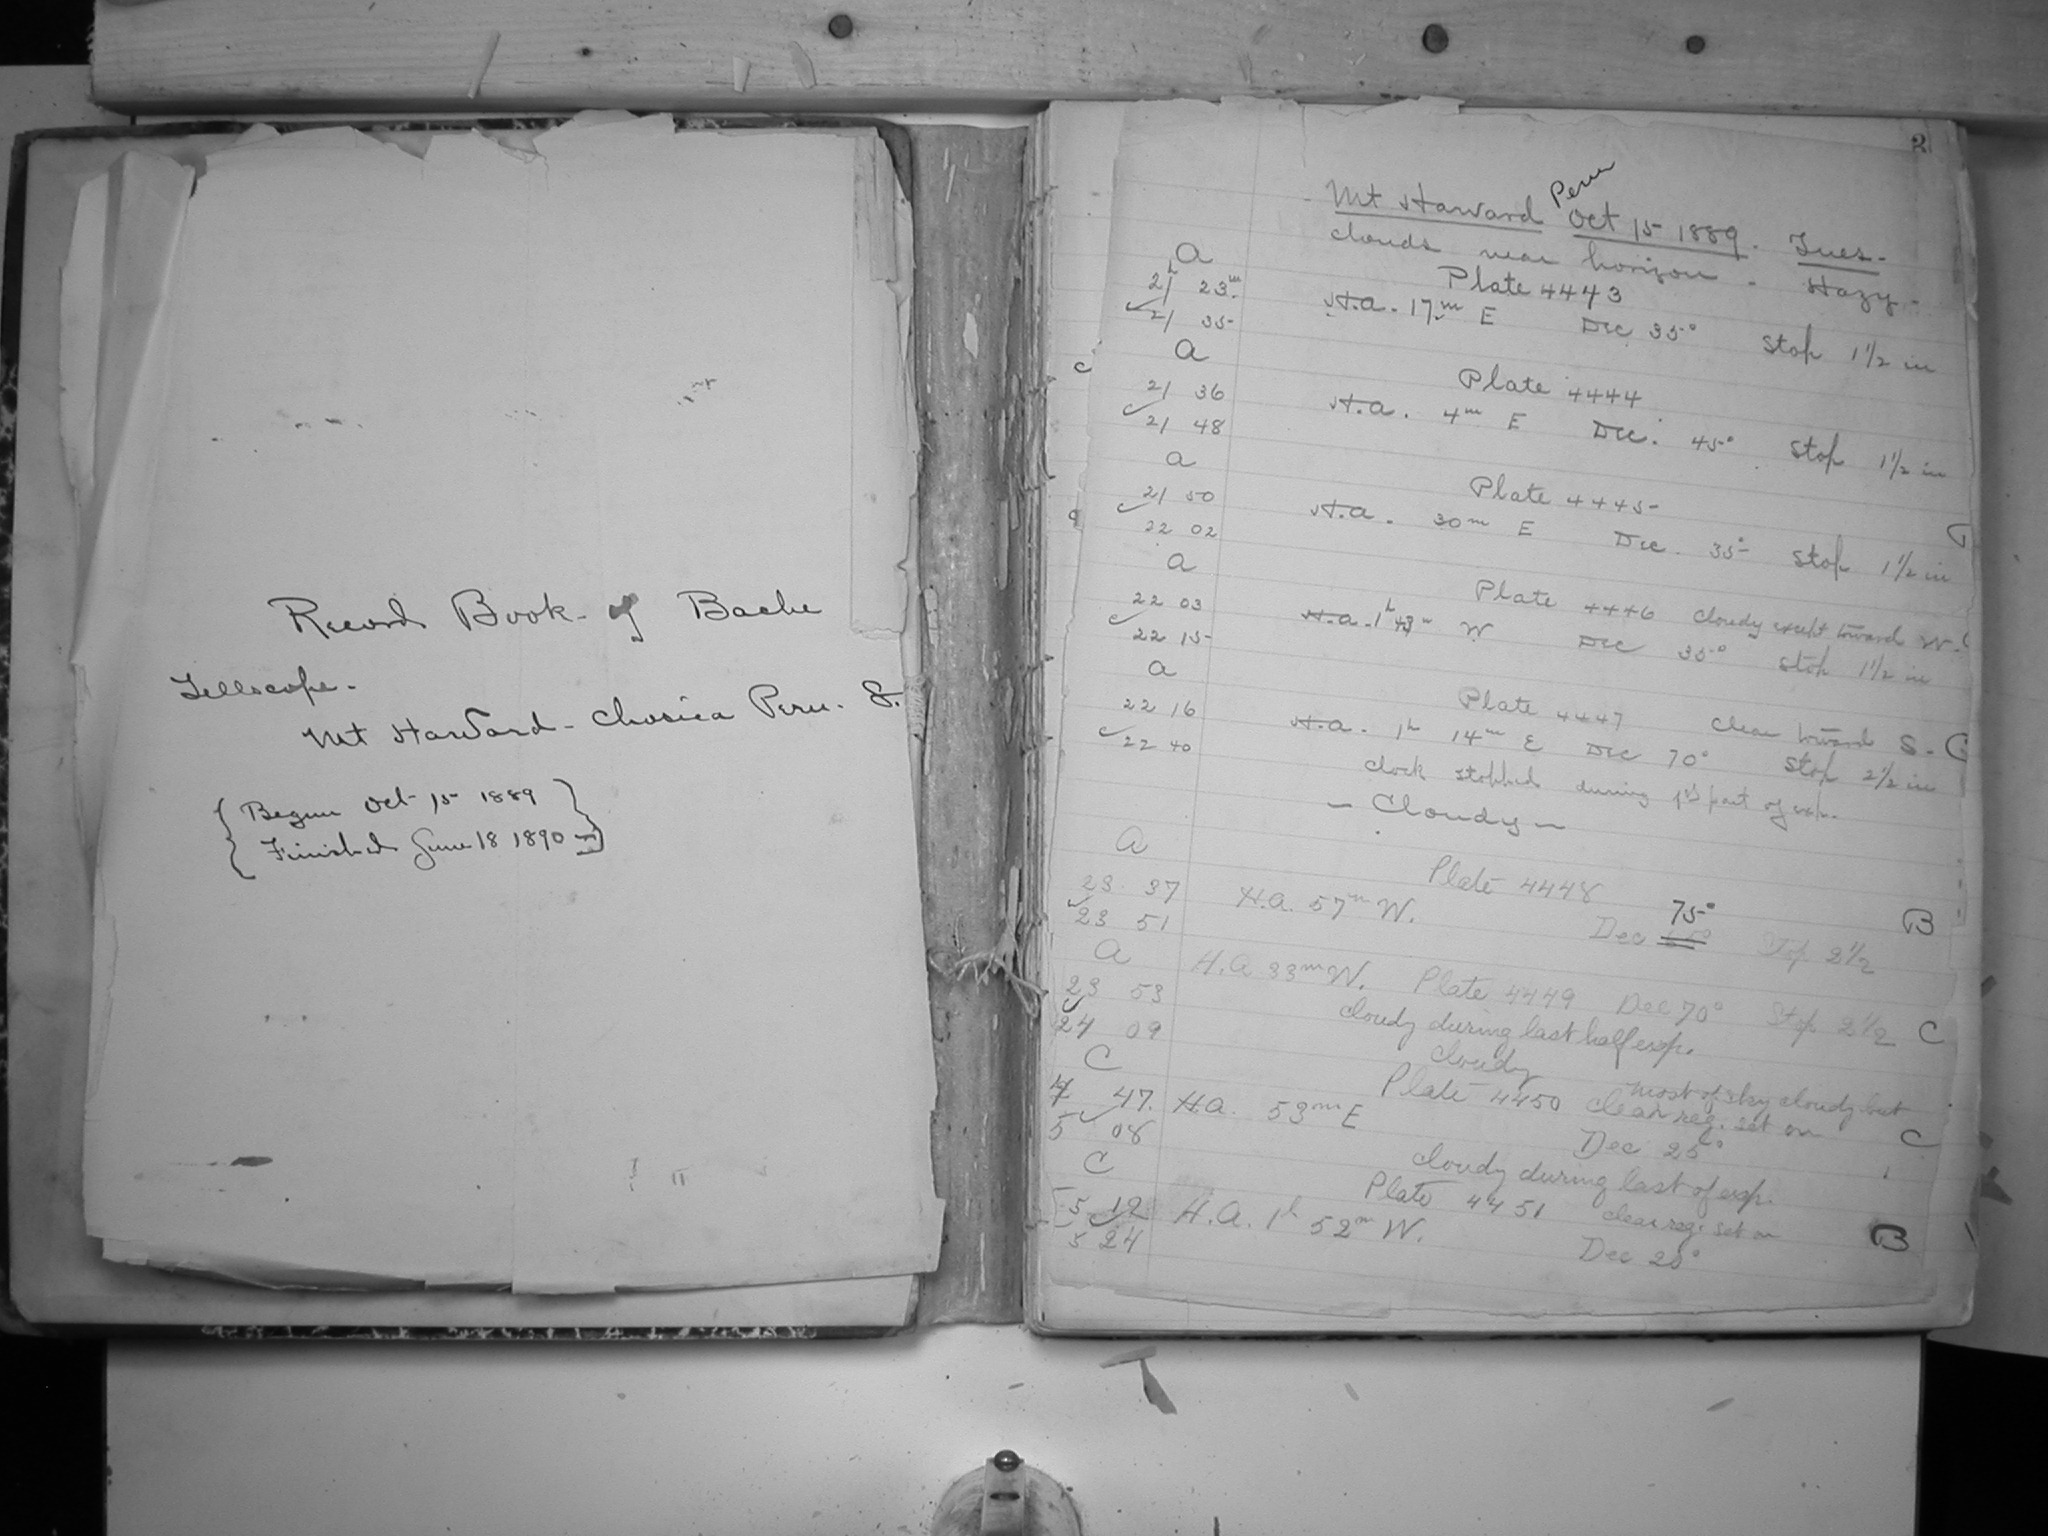 Record Book of Bache
Tellscope.
Mt Harvard - Chosica Peru. S.
Begun Oct 15 1889
Finished June 18 1890
2
Peru
Mt Harvard Oct 15 1889. Tues.
clouds near horizon. Hazy.
a
Plate 4443
21h 23m H.a. 17m E Dec 35° Stop 1 1/2 in
21 35
a
Plate 4444
21 36 H.a. 4m E Dec. 45° Stop 1 1/2 in
21 48
a
Plate 4445
21 50 H.a. 30m E Dec. 35° Stop 1 1/2 in
22 02
a
Plate 4446 Cloudy except toward W.
22 03 H.a. 1h 43m W Dec 35° Stop 1 1/2 in
22 15
a
Plate 4447 Clear toward S. C
22 16 H.a. 1h 14m E Dec 70° Stop 2 1/2 in
22 40
clock stopped during 1st part of exp.
- Cloudy -
a
Plate 4448
23 37 H.a. 57m W. Dec 75° Stop 2 1/2 B
23 51
a
H.a 33m W. Plate 4449 Dec 70° Stop 2 1/2 C
23 53
cloudy during last half exp.
24 09
cloudy
C
Plate 4450 most of sky cloudy but
clear reg. set on
4 47. H.a. 53m E Dec 25° C
5 08
cloudy during last of exp.
C
Plate 4451 clear reg. set on
5 12 H.a. 1h 52m W. Dec 25° B
5 24